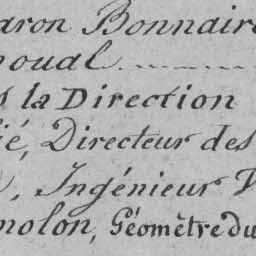 aron Bonnaire
noual
s la Direction
ié, Directeur des
, Ingénieur V
molon, Géomètre du